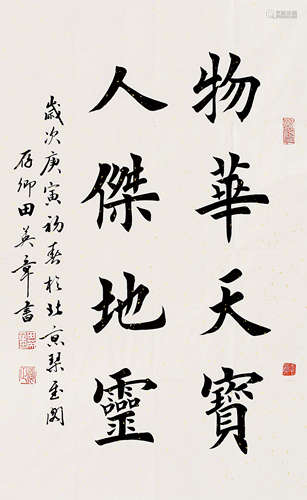 物華天寶
人傑地靈
歲次庚寅初春於北京琹玉閣
存卿田英章書